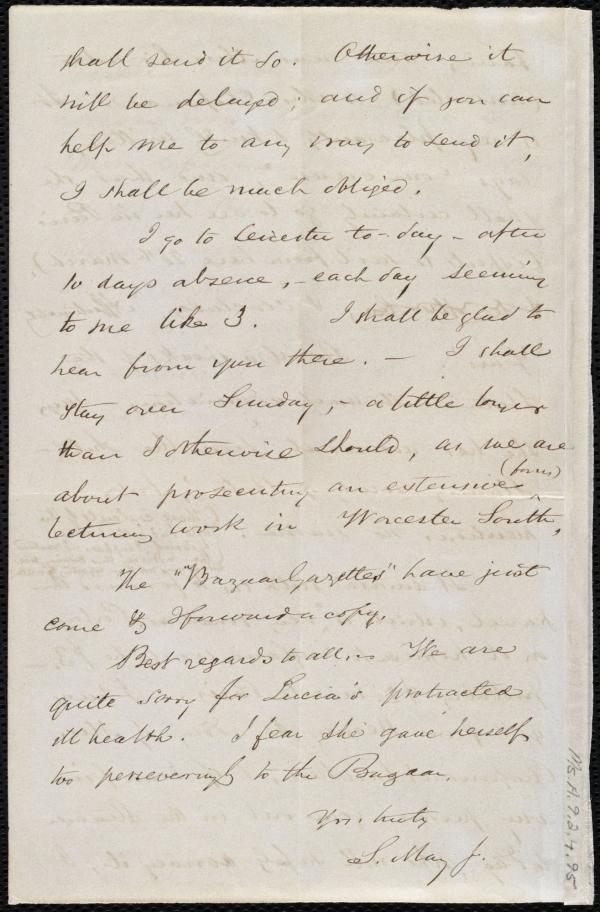 shall send it so. Otherwise it
will be delayed; and if you can
help me to any way to send it,
I shall be much obliged.
I go to Leicester to-day - after
10 days absence, - each day seeming
to me like 3. I shall be glad to
hear from you there. - I shall
stay over Sunday, - a little longer
than I otherwise should, as we are
about prosecuting an extensive (for us)
lecturing work in Worcester South.
The "Bazaar Gazettes" have just
come & I forward a copy.
Best regards to all. - We are
quite sorry for Lucia's protracted
ill health. I fear she gave herself
too perseveringly to the Bazaar.
Yrs. truly
S. May Jr.
Ms. A. 9. 2. 4. 95